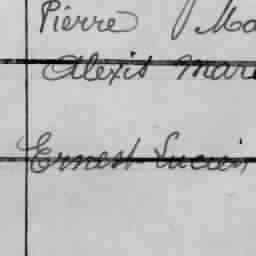 Pierre Ma
Alexis Mari
Ernest Lucien